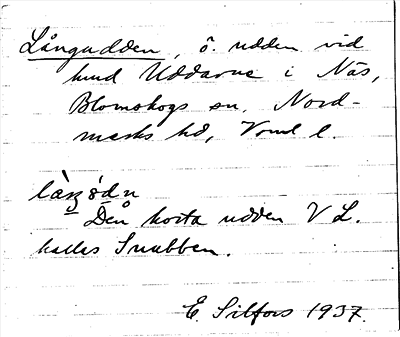 Långudden, ö. udden vid
hmd Uddarne i Näs,
Blomskogs sn, Nord-
marks hd, Vrml l.
Den korta udden V L.
kallas Snubben.
E. Silfors 1937.